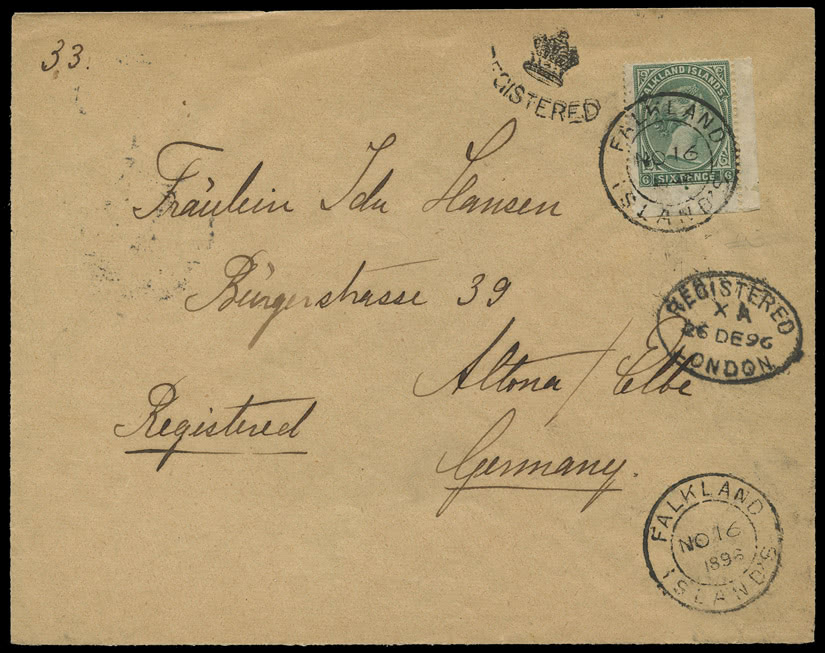 33.
REGISTERED
FALKLAND ISLANDS
6 SIX PENCE 6
FALKLAND ISLAND'S
NO 16
Fräulein Ida Hansen
Bürgerstrasse 39
Altona / Elbe
Germany.
Registered
REGISTERED
X A
26 DE 96
LONDON
FALKLAND ISLAND'S
NO 16
1896